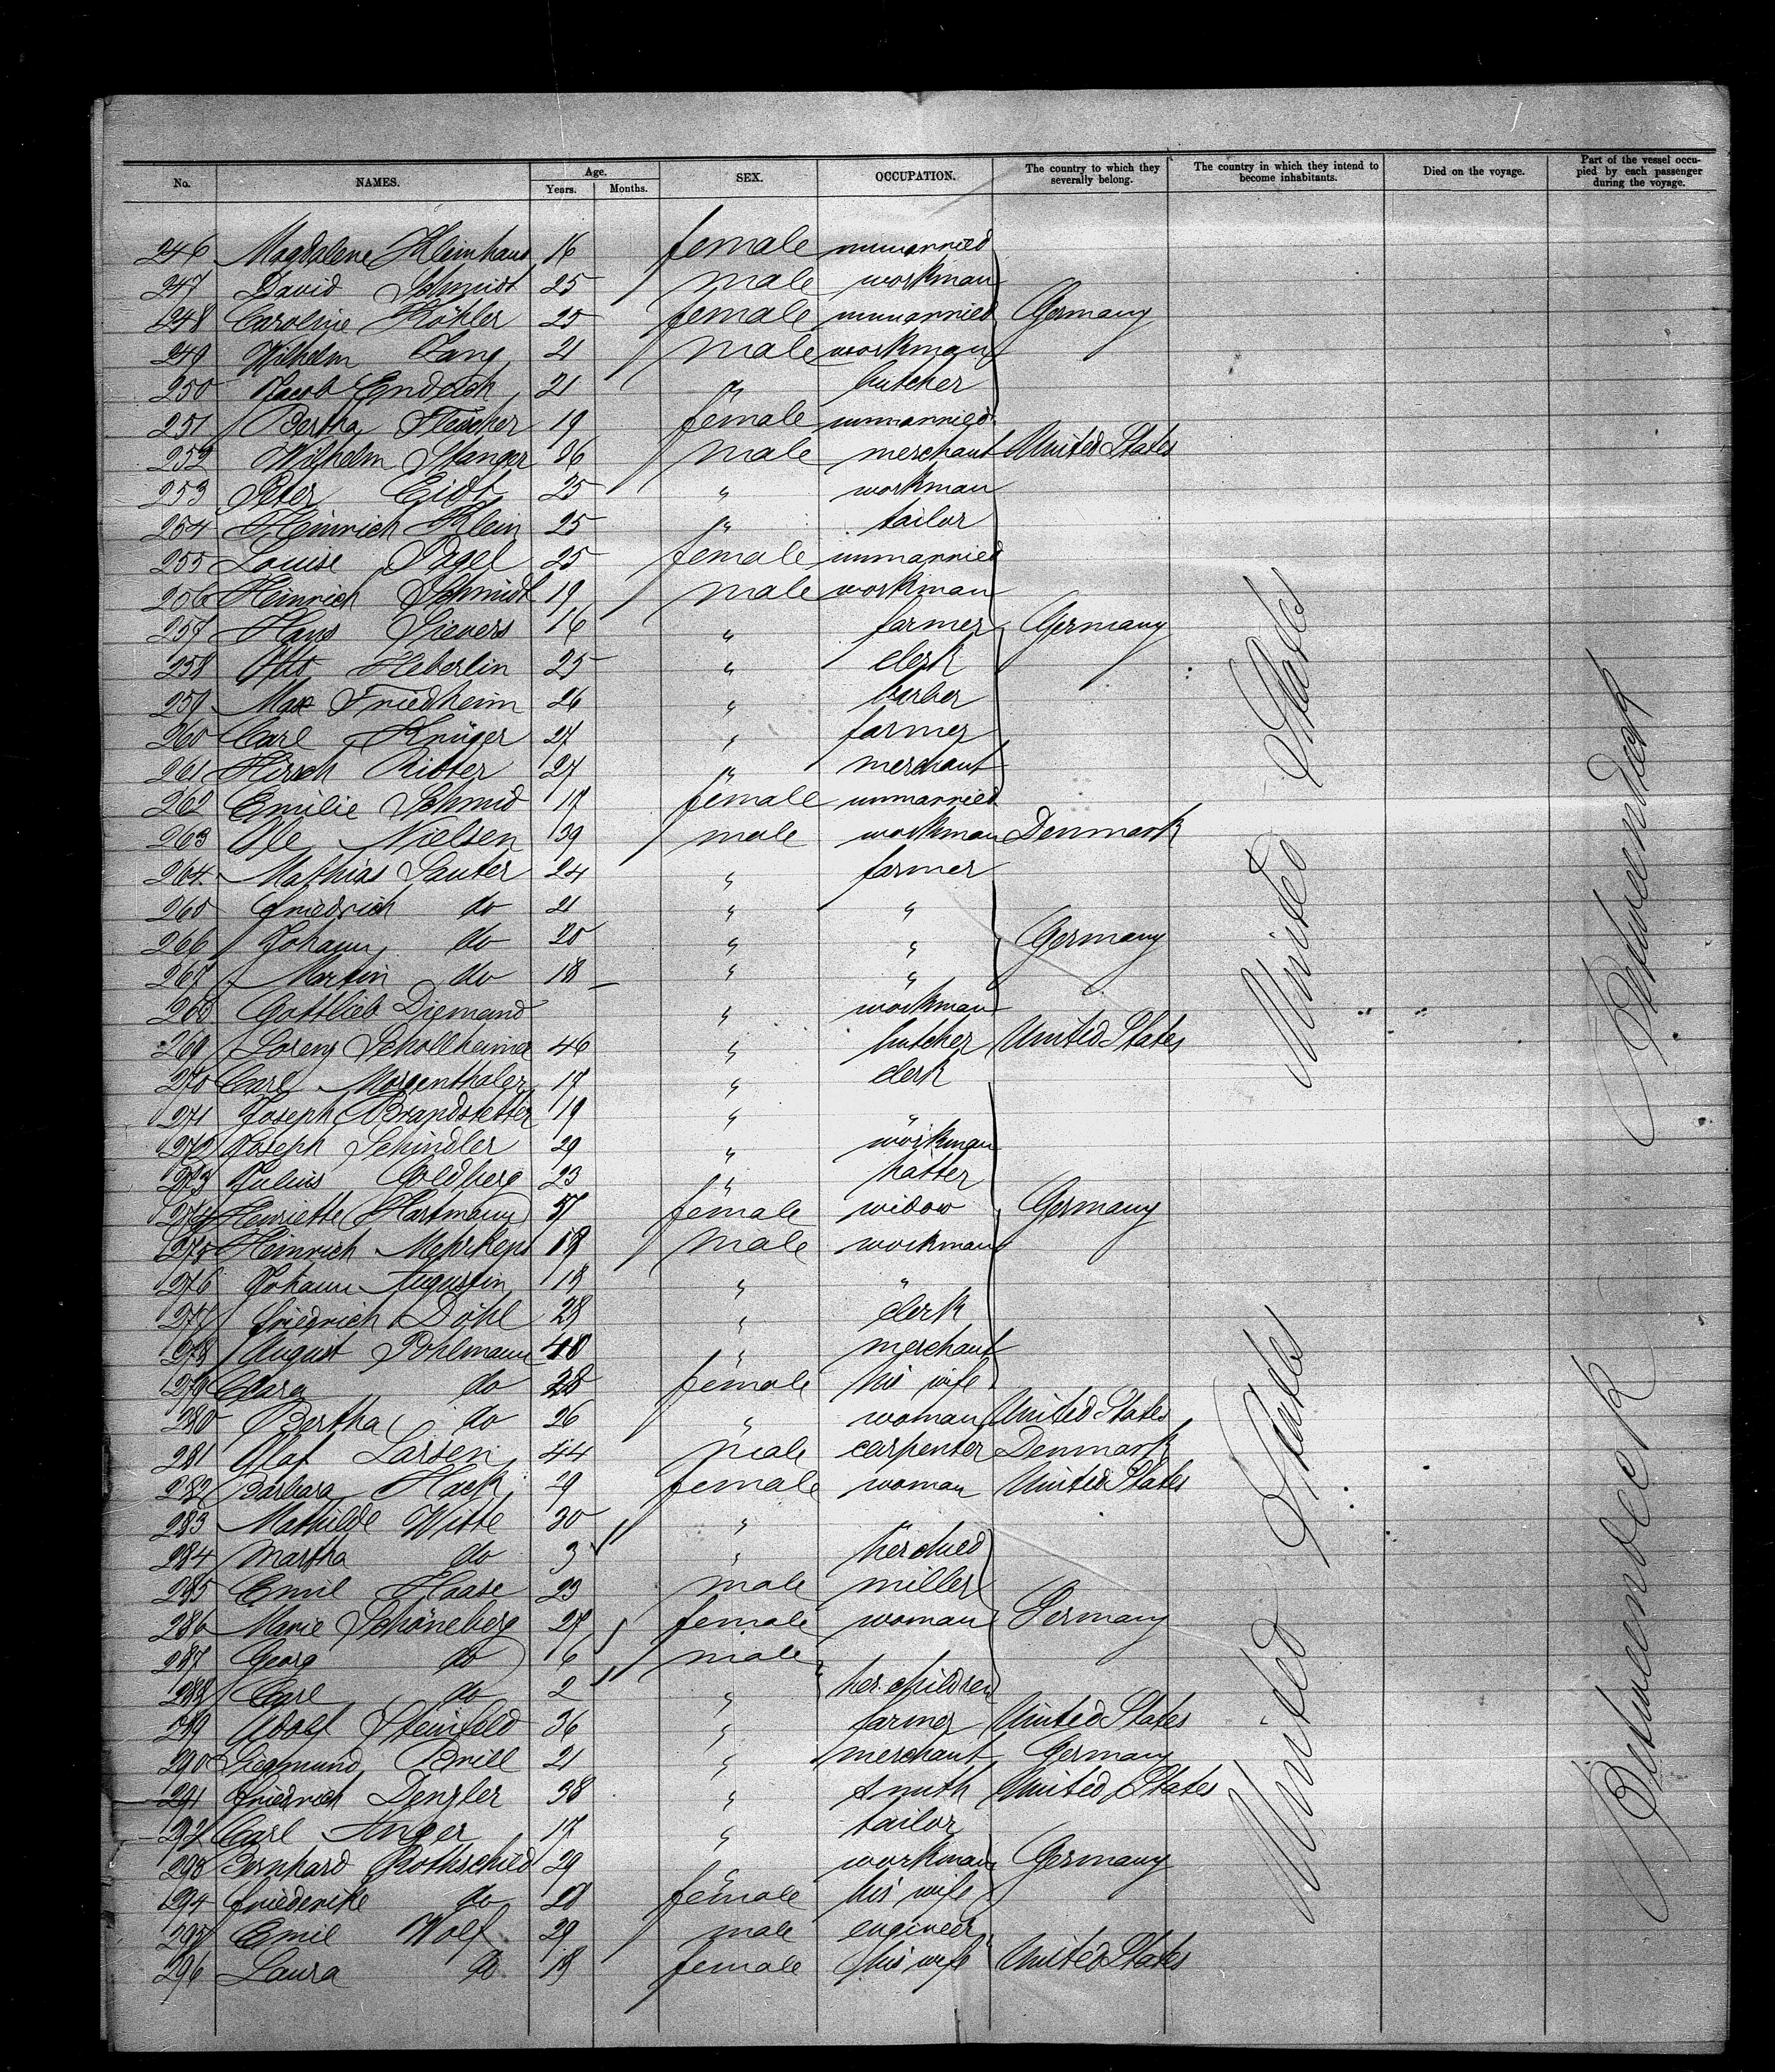 No. NAMES. Age. Years. Months. SEX. OCCUPATION. The country to which they severally belong. The country in which they intend to become inhabitants. Died on the voyage. Part of the vessel occupied by each passenger during the voyage.
246 Magdalene Kleinhans 16 female unmarried
247 David Schmidt 25 male workman
248 Caroline Köhler 25 female unmarried Germany
249 Wilhelm Lang 21 male workman
250 Jacob 21 " butcher
251 Bertha Fleischer 19 female unmarried
252 Wilhelm Stanger 36 male merchant United States
253 Peter Eidt 25 " workman
254 Heinrich Klein 25 " tailor
255 Louise Pagel 25 female unmarried
256 Heinrich Schmidt 19 male workman
257 Hans Sievers 16 " farmer Germany
258 Otto Heberlin 25 " clerk
259 Max Friedheim 26 " barber
260 Carl Krüger 27 " farmer
261 Hirsch Ritter 27 " merchant
262 Emilie Schmid 17 female unmarried
263 Ole Nielsen 39 male workman Denmark
264 Mathias Sauter 24 " farmer
265 Friedrich do 21 " "
266 Johann do 20 " " Germany
267 Martin do 18 " "
268 Gottlieb Diemand " workman
269 Lorenz Schollheimer 46 " butcher United States
270 Carl Morgenthaler 17 " clerk
271 Joseph Brandstetter 19 " "
272 Joseph Schindler 29 " workman
273 Julius Goldberg 23 " hatter
274 Henriette Hartmann 57 female widow Germany
275 Heinrich Mehrkens 18 male workman
276 Johann Augustin 18 " "
277 Friedrich Döhl 28 " clerk
278 August Pohlmann " merchant
279 Clara do 28 female his wife
280 Bertha do 26 " woman United States
281 Olaf Larsen 44 male carpenter Denmark
282 Barbara Hack 29 female woman United States
283 Mathilde Witte 30 " "
284 Martha do 3 " her child
285 Emil Haase 23 male miller
286 Marie Schöneberg 27 female woman Germany
287 Georg do 6 male "
288 Carl do 2 " her children
289 Adolf Steinfeld 36 " farmer United States
290 Siegmund Brill 21 " merchant Germany
291 Friedrich Dengler 38 " smith United States
292 Carl Anger 17 " tailor
293 Bernhard Rothschild 29 " workman Germany
294 Friederike do 28 female his wife
295 Emil Wolf 29 male engineer
296 Laura do 18 female his wife United States
United States
United States
Betweendeck
Betweendeck